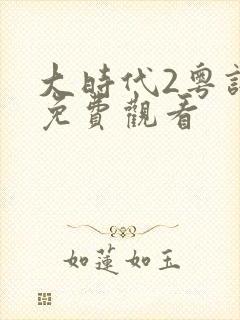 大時代2粵語
免費觀看
如蓮如玉